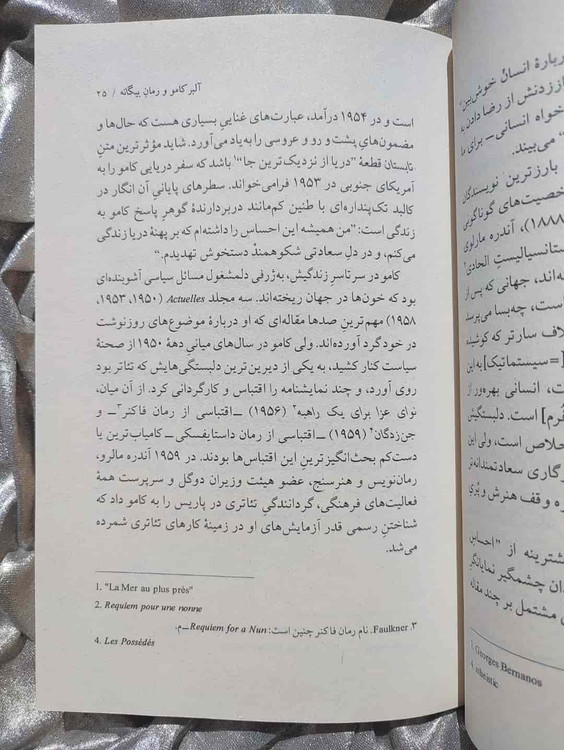 آلبر کامو و رمان بیگانه / ۲۵
است و در ۱۹۵۴ درآمد، عبارت‌های غنایی بسیاری هست که حال‌ها و
مضمون‌های پشت و رو و عروسی را به یاد می‌آورد. شاید مؤثرترین متنِ
تابستان قطعهٔ "دریا از نزدیک‌ترین جا"۱ باشد که سفر دریایی کامو به
آمریکای جنوبی در ۱۹۵۳ فرامی‌خواند. سطرهای پایانیِ آن انگار در
کالبد تک‌پنداره‌ای با طنین کم‌مانند دربردارندهٔ گوهرِ پاسخ کامو به
زندگی است: "من همیشه این احساس را داشته‌ام که بر پهنهٔ دریا زندگی
می‌کنم، و در دلِ سعادتی شکوهمند دستخوش تهدیدم."
کامو در سرتاسرِ زندگیش، به‌ژرفی دلمشغول مسائل سیاسی آشوبنده‌ای
بود که خون‌ها در جهان ریخته‌اند. سه مجلد Actuelles (۱۹۵۰، ۱۹۵۳،
۱۹۵۸) مهم‌ترینِ صدها مقاله‌ای که او دربارهٔ موضوع‌های روز نوشت
در خود گرد آورده‌اند. ولی کامو در سال‌های میانیِ دههٔ ۱۹۵۰ از صحنهٔ
سیاست کنار کشید، به یکی از دیرین‌ترین دلبستگی‌هایش که تئاتر بود
روی آورد، و چند نمایشنامه را اقتباس و کارگردانی کرد. از آن میان،
نوای عزا برای یک راهبه۲ (۱۹۵۶) ــ اقتباسی از رمان فاکنر۳ ــ و
جن‌زدگان۴ (۱۹۵۹) ــ اقتباسی از رمان داستایفسکی ــ کامیاب‌ترین یا
دست‌کم بحث‌انگیزترینِ این اقتباس‌ها بودند. در ۱۹۵۹ آندره مالرو،
رمان‌نویس و هنرسنج، عضو هیئت وزیران دوگل و سرپرست همهٔ
فعالیت‌های فرهنگی، گردانندگیِ تئاتری در پاریس را به کامو داد که
شناختنِ رسمی قدر آزمایش‌های او در زمینهٔ کارهای تئاتری شمرده
می‌شد.
1. "La Mer au plus près"
2. Requiem pour une nonne
۳. Faulkner. نام رمان فاکنر چنین است: Requiem for a Nun ــ م.
4. Les Possédés
دربارهٔ انسانْ خوش‌بین"
از زدنش از رضا دادن به
خواه انسانی ــ برای ما
" می‌بیند.
بارزترین نویسندگان
شخصیت‌های گوناگونی
۱۸۸۸)، آندره مارلوی
ستانسیالیستِ الحادی۲
ه‌اند، جهانی که پس از
است، چه‌بسا می‌پرسد
لاف سارتر که کوشید
[=سیستماتیک] به این
ت، انسانی بهره‌ور از
فُرم] است. دلبستگیش
خلاص است، ولی این
گاری سعادتمندانه‌تر
ره وقف هنرش و بُری
شترینه از "احساس
دان چشمگیر نمایانگر
ی مشتمل بر چند مقاله
Georges Bernanos
atheistic